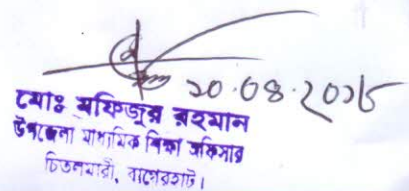 ২০.০৪.২০১৮
মোঃ মফিজুর রহমান
উপজেলা মাধ্যমিক শিক্ষা অফিসার
চিতলমারী, বাগেরহাট।